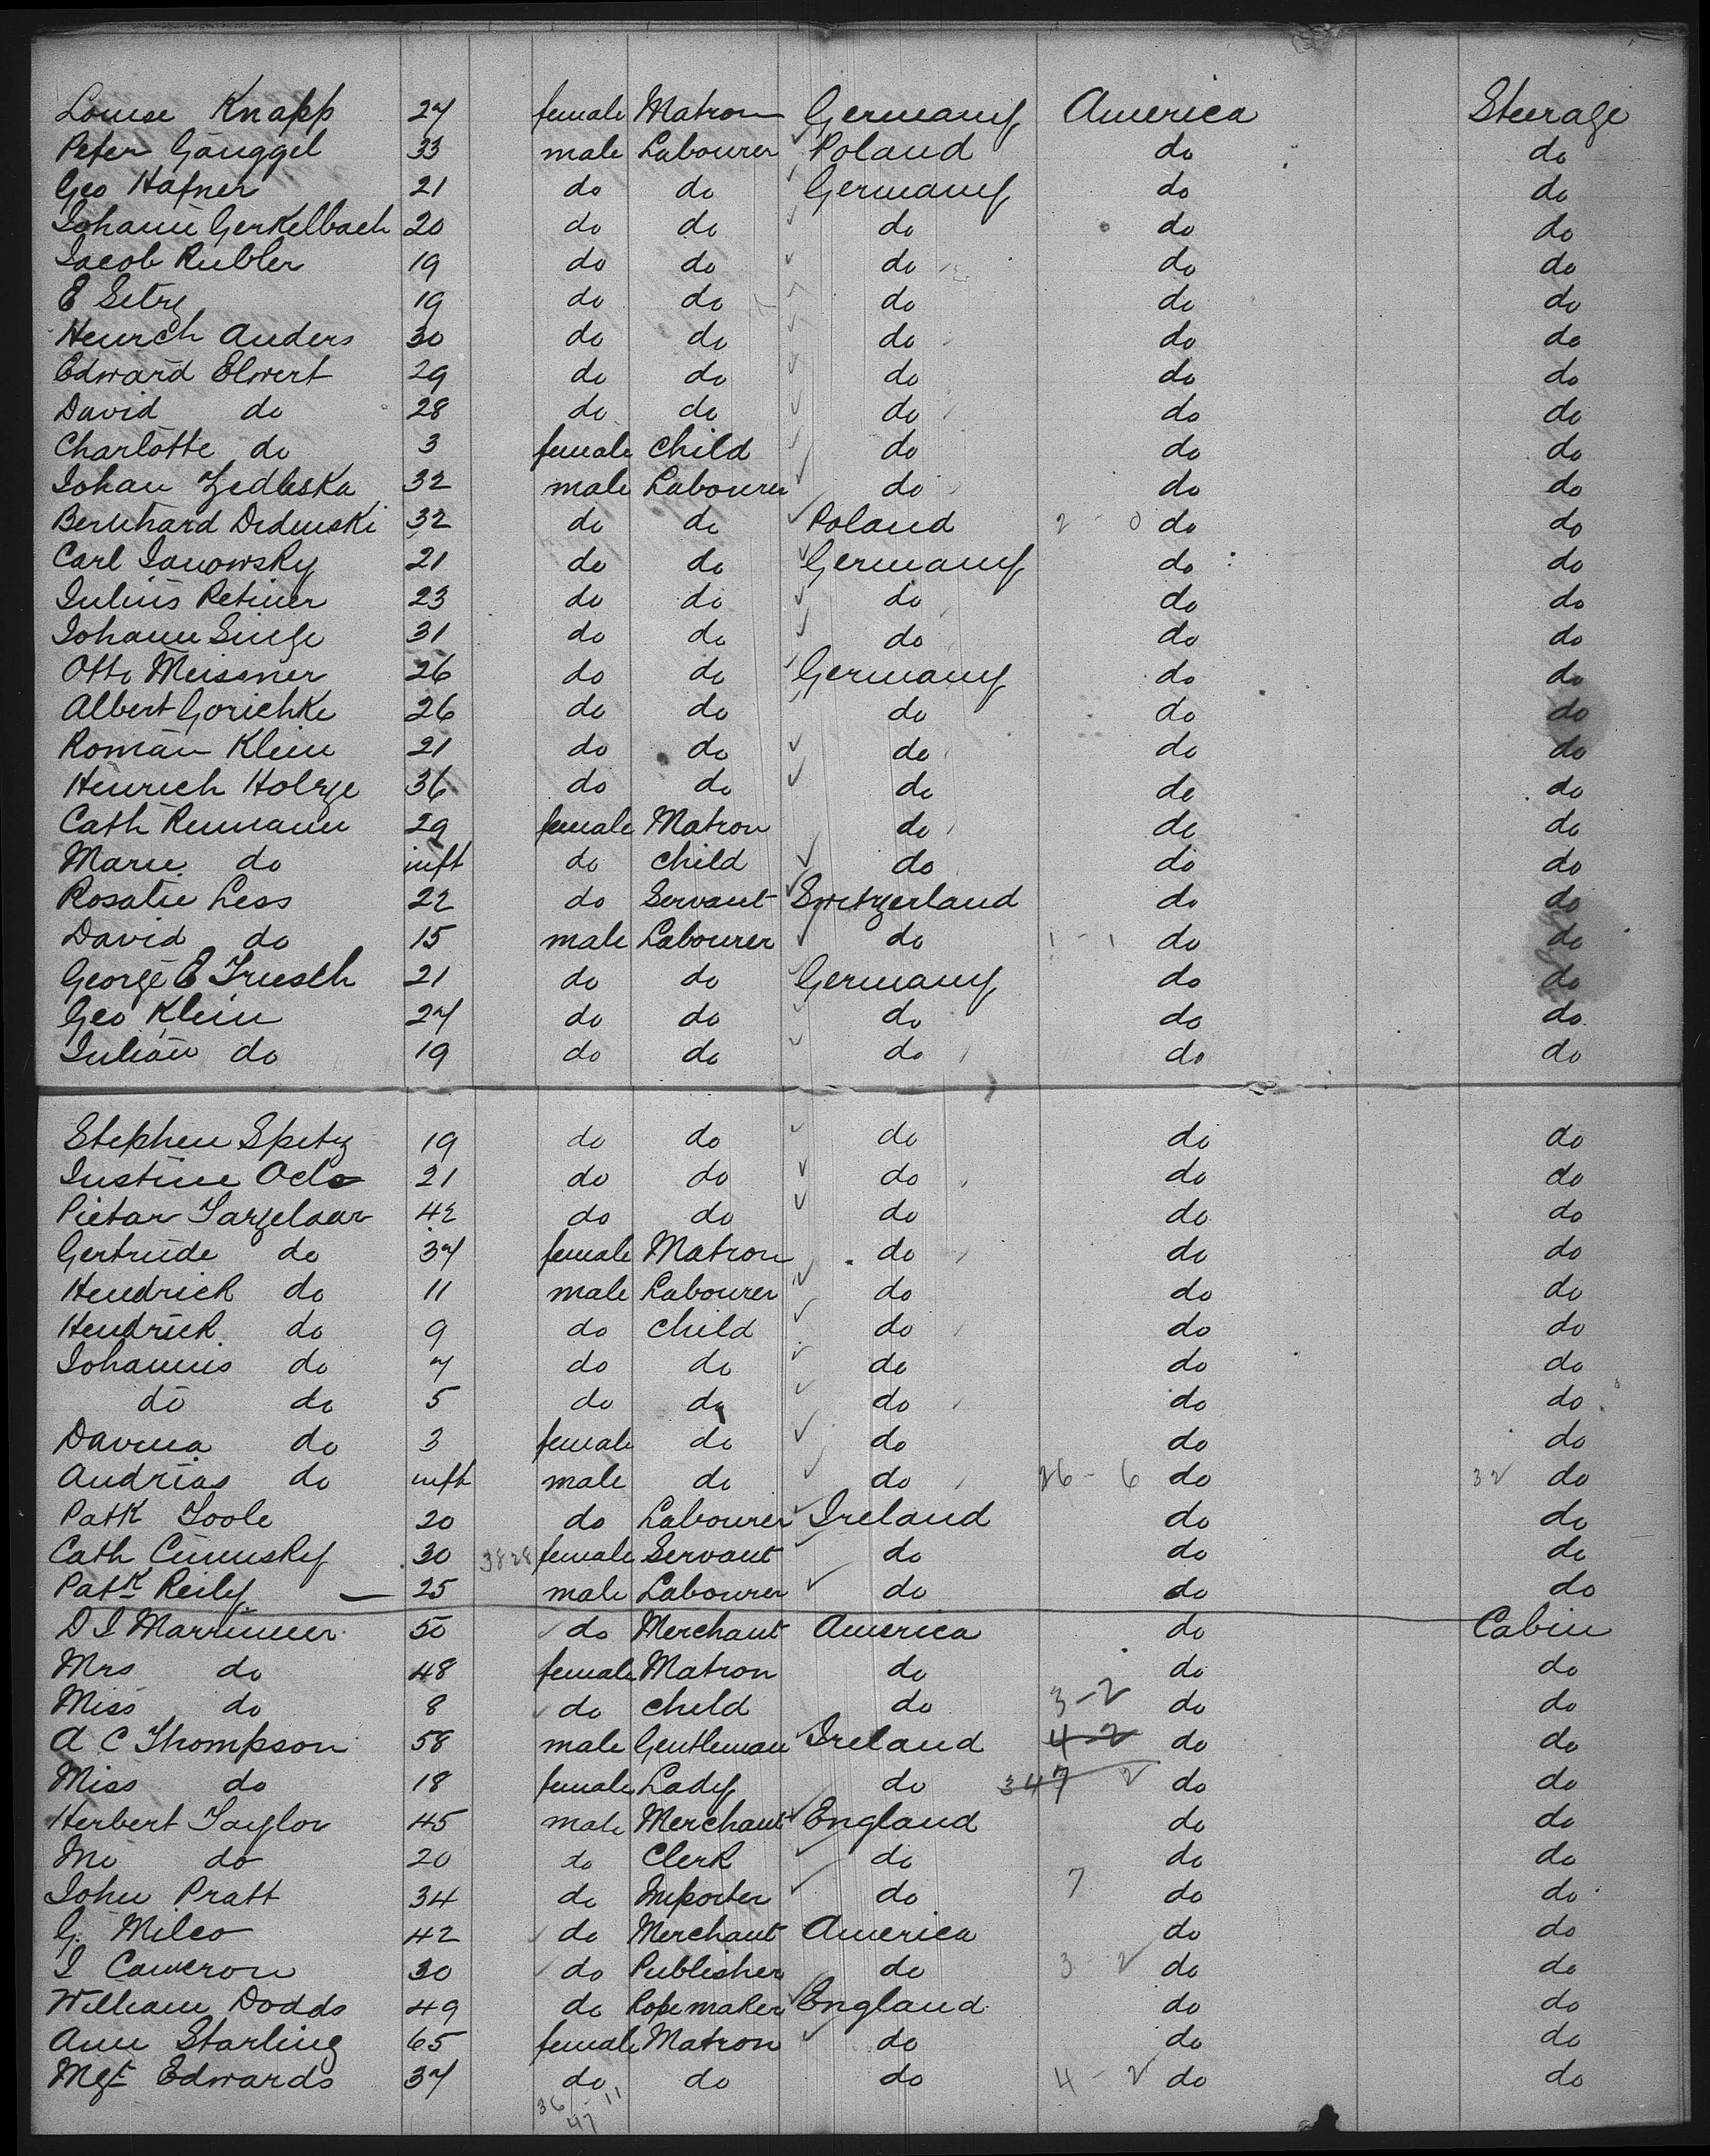 Louise Knapp 27 female Matron Germany America Steerage
Peter Gänggel 33 male Labourer Poland do do
Geo Hafner 21 do do Germany do do
Johann Gerkelbach 20 do do do do do
Jacob Rubler 19 do do do do do
E Seitz 19 do do do do do
Heinrich Anders 30 do do do do do
Edward Elwert 29 do do do do do
David do 28 do do do do do
Charlotte do 3 female child do do do
Johan Zedleska 32 male Labourer do do do
Bernhard 32 do do Poland 2 - 0 do do
Carl Janowsky 21 do do Germany do do
Julius Retiner 23 do do do do do
Johann Singe 31 do do do do do
Otto Meissner 26 do do Germany do do
Albert Gorichke 26 do do do do do
Roman Klein 21 do do do do do
Heinrich Holzge 36 do do do do do
Cath Reimann 29 female Matron do do do
Marie do inft do child do do do
Rosalie Less 22 do Servant Switzerland do do
David do 15 male Labourer do 1 - 1 do do
George E Truesch 21 do do Germany do do
Geo Klein 27 do do do do do
Julian do 19 do do do do do
Stephen Spitz 19 do do do do do
Justine Ocls 21 do do do do do
Pietar Targelaar 42 do do do do do
Gertrude do 37 female Matron do do do
Hendrick do 11 male Labourer do do do
Hendrick do 9 do child do do do
Johannis do 7 do do do do do
do do 5 do do do do do
Davina do 3 female do do do do
Andrias do inft male do do 26 - 6 do 32 do
Patk Toole 20 do Labourer Ireland do do
Cath 30 38 28 female Servant do do do
Patk Reily 25 male Labourer do do do
D J Marrimer 50 do Merchant America do Cabin
Mrs do 48 female Matron do do do
Miss do 8 do child do 3 - 2 do do
A C Thompson 58 male Gentleman Ireland 4 - 2 do do
Miss do 18 female Lady do 347 2 do do
Herbert Taylor 45 male Merchant England do do
Mr do 20 do Clerk do do do
John Pratt 34 do Importer do 7 do do
G. Miles 42 do Merchant America do do
J Cameron 30 do Publisher do 3 - 2 do do
William Dodds 49 do Ropemaker England do do
Ann Starling 65 female Matron do do do
Mgt Edwards 37 do do do 4 - 2 do do
36 - 11
47